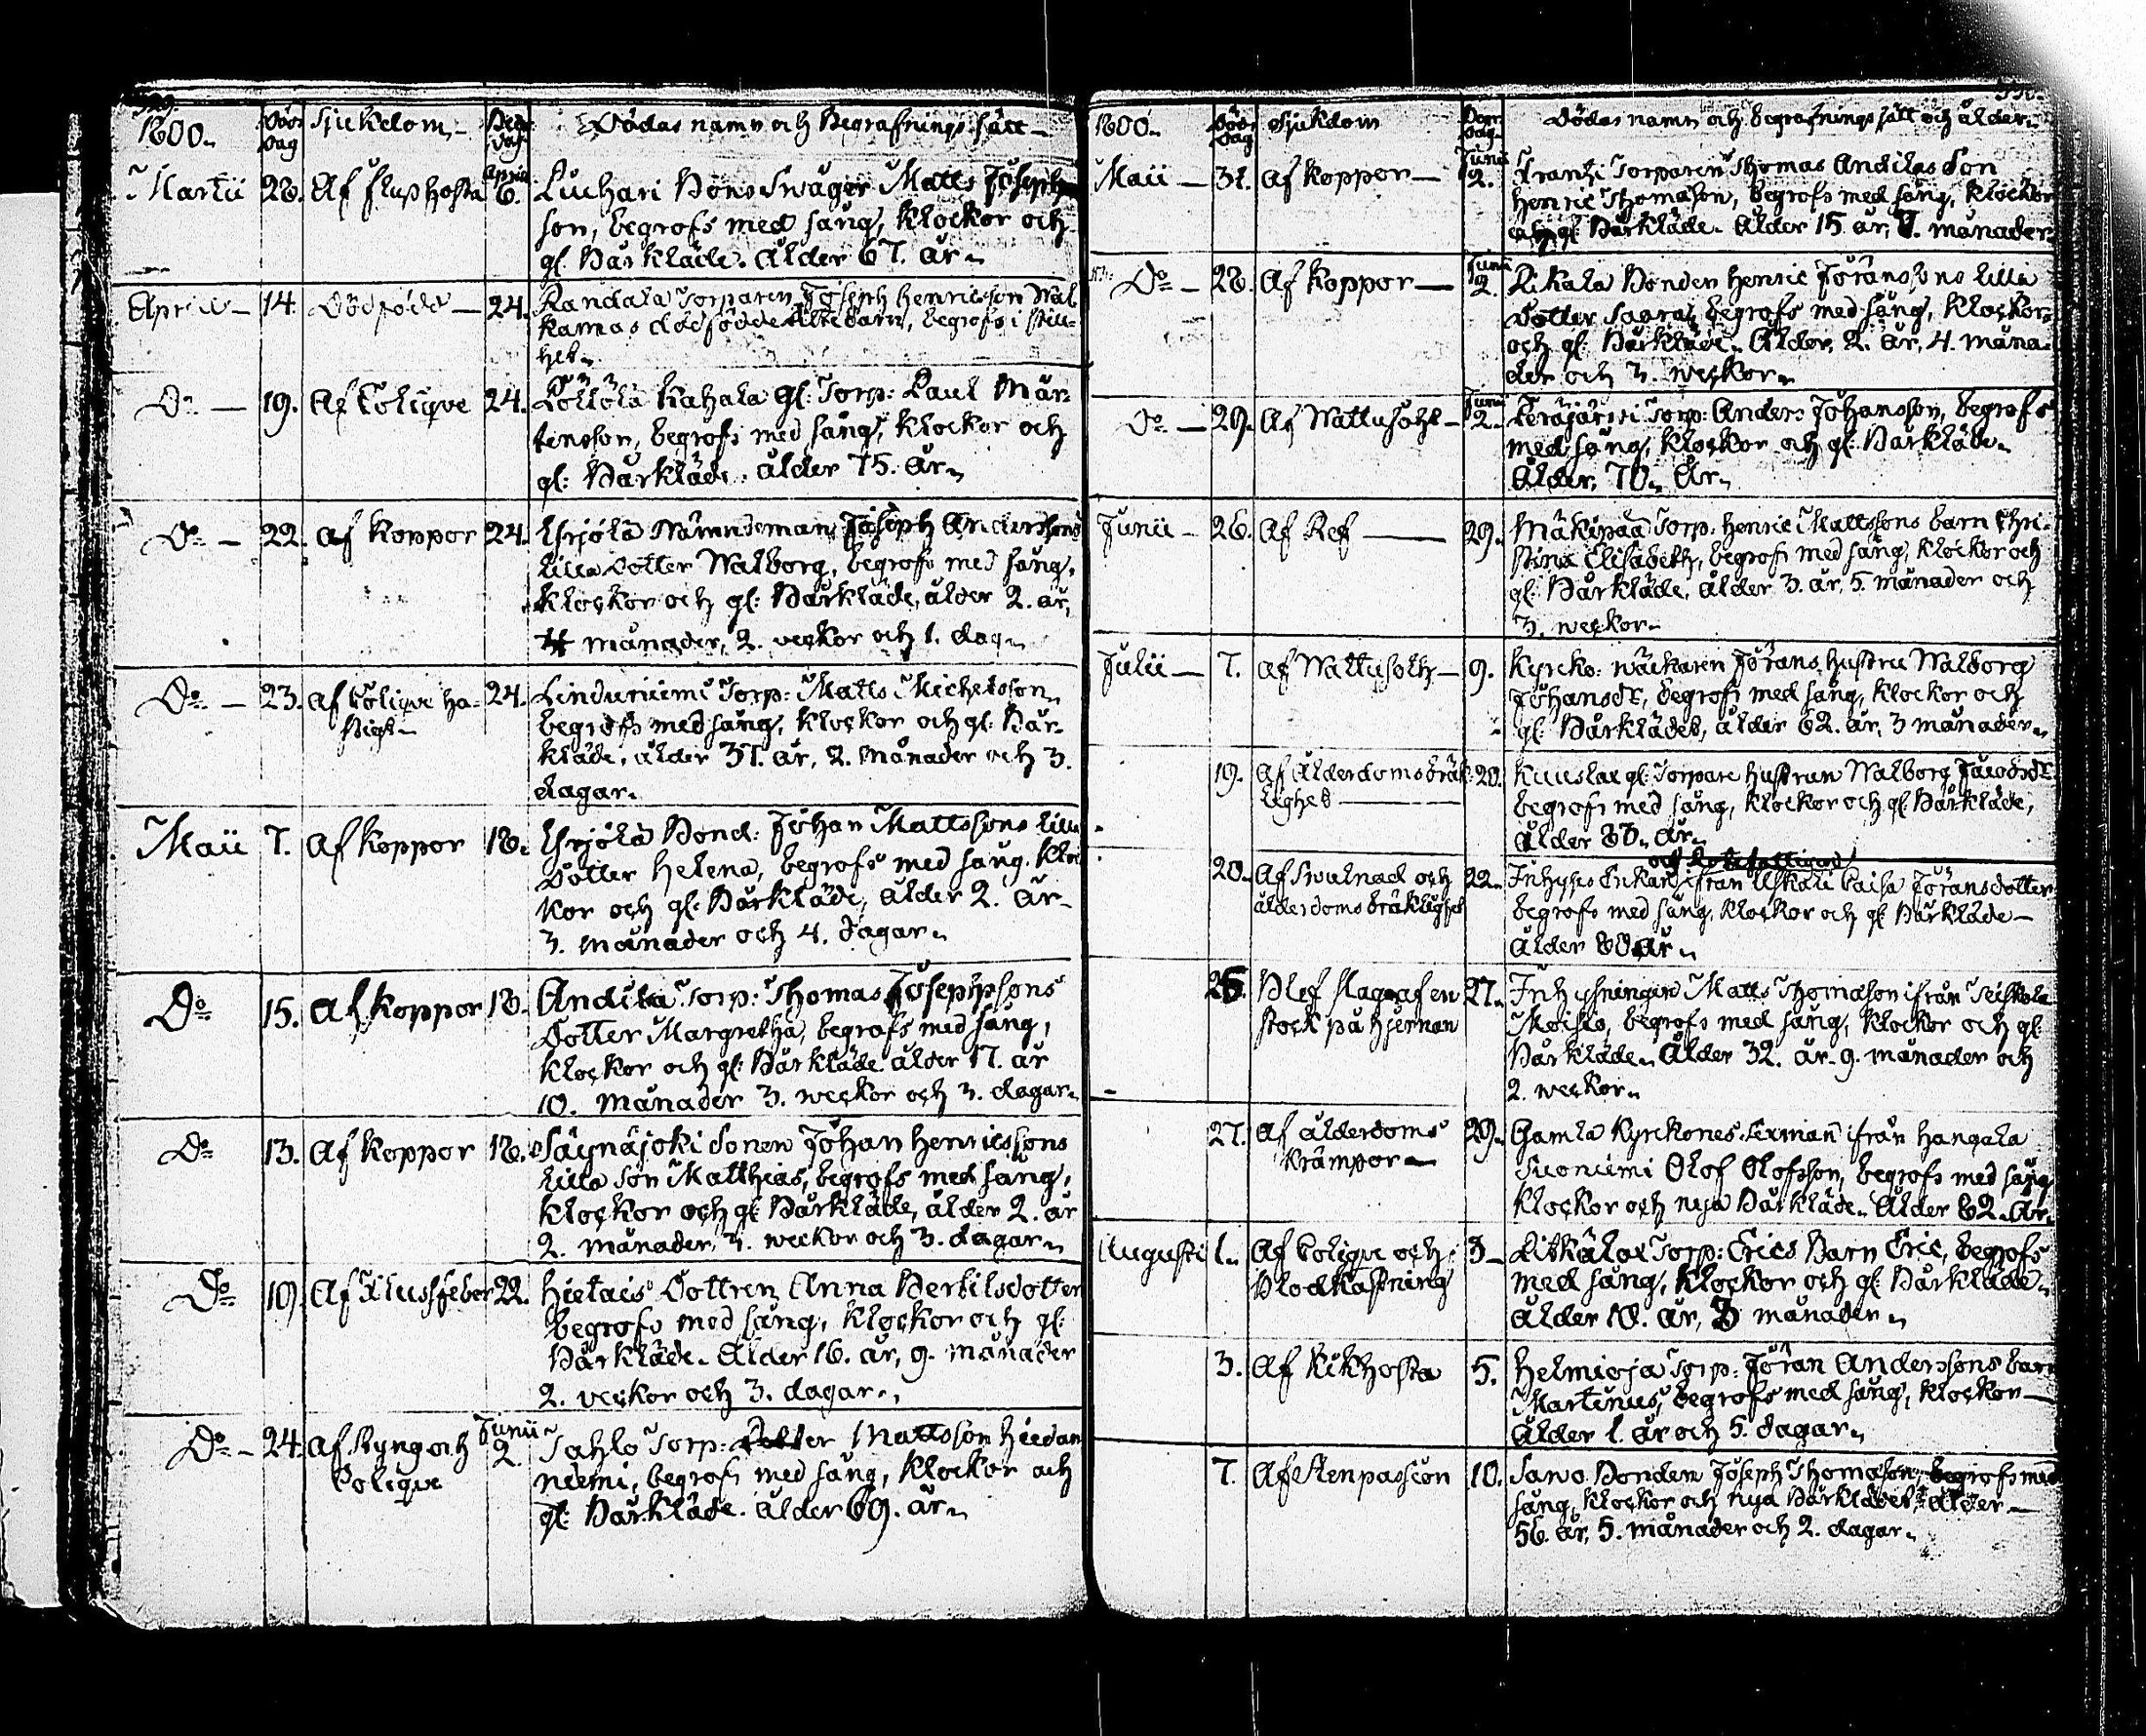 1800.
Död: Dag
Sjukdom
Begr: dag
Dödas namn och Begrafnings-sätt
Martii 28. Af flusshosta April 6. Luchari Bonds Swåger Matts Josephs
son, begrofs med sång, klockor och
gl. Bårkläde. Ålder 67. år
April 14. Dödfödd 24. Torparen Joseph Henricsson
dödfödde barn, begrofs i still-
het
Do 19. Af Colique 24. Löllölä Kahala gl: Torp: Paul Mår-
tensson, begrofs med sång, klockor och
gl: Bårkläde. ålder 75. år
Do 22. af koppor 24. Yrjölä Nämndeman Joseph Anderssons
lilla dotter Walborg, begrofs med sång,
klockor och gl: Bårkläde, ålder 2. år,
månader, 2. veckor och 1. dag
Do 23. af Colique ha- 24. Linduniemi Torp: Matts Michelsson
stigt
begrofs med sång, klockor och gl: Bår-
kläde, ålder 31. år, 2. månader och 3.
dagar.
Maii 7. af koppor 18. Yrjölä Bond: Johan Mattssons lilla
Dotter Helena, begrofs med sång, kloc
kor och gl: Bårkläde, ålder 2. år
3. månader och 4. dagar
Do 15. af koppor 18. Andila Torp: Thomas Josephssons
Dotter Margretha, begrofs med sång,
klockor och gl: Bårkläde ålder 17. år
10. månader 3. weckor och 3. dagar
Do 13. af koppor 18. Säynäjoki Sonen Johan Henricssons
lilla son Matthias, begrofs med sång,
klockor och gl: Bårkläde, ålder 2. år
2. månader, 3. weckor och 3. dagar
Do 19. Af Flussfeber 22. Hietais Dottren Anna Bertilsdotter
begrofs med sång, klockor och gl:
Bårkläde. Ålder 16. år, 9. månader
2. veckor och 3. dagar.
Do 24. af Styng och Junii 2. Sahlo Torp: Mattsson
Colique
begrofs med sång, klockor och
gl: Bårkläde. ålder 69. år
1800.
Död: Dag
Sjukdom
Begr: dag
Dödas namn och begrafnings sätt och ålder
Maii 31. af koppor Junii 2. Frantzi Torparen Thomas Andilas Son
Henric Thomasson, begrofs med sång, klockor
gl: Bårkläde. Ålder 15. år, månader
Do 28. af koppor Junii 2. Rikala Bonden Henric Jöranssons lilla
dotter Saara, begrofs med sång, klockor
och gl: Bårkläde. Ålder, 2. år, 4. måna-
der och 3. weckor
Do 29. Af Wattusoht Junii 2. Teräjärwi Torp: Anders Johansson, begrofs
med sång, klockor och gl: Bårkläde.
Ålder, 70. År
Junii 26. Af Ref 29. Mäkipää Torp. Henric Mattssons barn Chri-
stina Elisabeth, begrofs med sång, klockor och
gl: Bårkläde, ålder 3. år, 5. månader och
3. weckor
Julii 7. af Wattusoth 9. Kyrko: wäckaren Jörans hustru Walborg
Johansdr, begrofs med sång, klockor och
gl: Bårklädet, ålder 62. år, 3 månader
19. af Ålderdomsbräk- 20. Kuuslax gl: Torpare hustrun Walborg
lighet
begrofs med sång, klockor och gl: Bårkläde,
Ålder år
20. Af Swulnad och 22. Inhyses Enkan ifrån Uskali Caisa Jöransdotter
ålderdoms bräklighet
begrofs med sång, klockor och gl: Bårkläde
Ålder 80 år
Blef slagen af en 27. Inhysningen Matts Thomasson ifrån
stock på hjernan
Moisio, begrofs med sång, klockor och gl:
Bårkläde. Ålder 32. år. 9. månader och
2. weckor
27. af ålderdoms 29. Gamla Kyrkones Sexman ifrån Hangala
krämpor
Suoniemi Olof Olofsson, begrofs med sång
klockor och nya Bårkläde. Ålder 62. år
Augusti 1. Af Colique och 3 Torp: Erics Barn Eric, begrofs
Blodkastning
med sång, klockor och gl: Bårkläde
Ålder 18. år, 3 månader
3. Af Kikhosta 5. Helmioja Torp: Jöran Anderssons barn
Martinus, begrofs med sång, klockor
Ålder 1. År och 5. dagar
7. Af Stenpassion 10. Sawo Bonden Joseph Thomasson, begrofs med
sång, klockor och nya Bårklädet, Ålder
56. år, 5. månader och 2. dagar